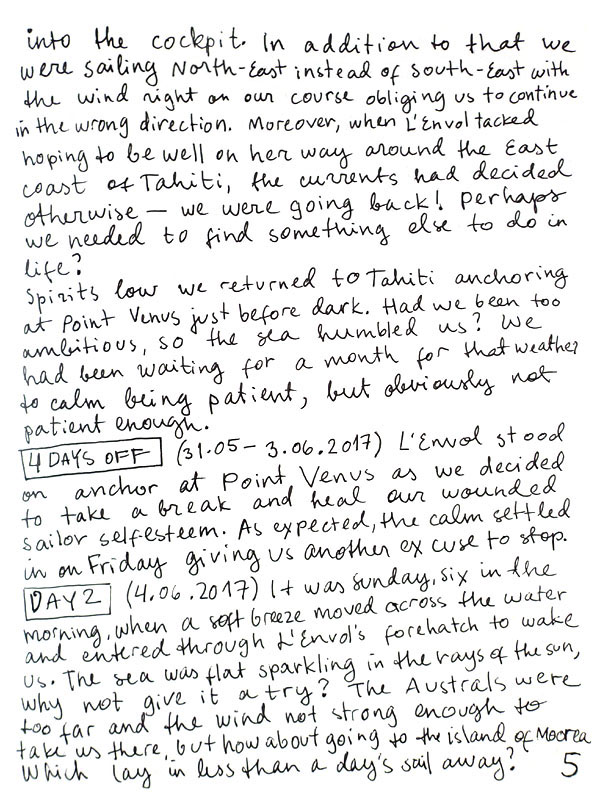 into the cockpit. In addition to that we
were sailing North-East instead of South-East with
the wind right on our course obliging us to continue
in the wrong direction. Moreover, when L'Envol tacked
hoping to be well on her way around the East
coast of Tahiti, the currents had decided
otherwise — we were going back! Perhaps
we needed to find something else to do in
life?
Spirits low we returned to Tahiti anchoring
at Point Venus just before dark. Had we been too
ambitious, so the sea humbled us? We
had been waiting for a month for that weather
to calm being patient, but obviously not
patient enough.
4 DAYS OFF (31.05 – 3.06.2017) L'Envol stood
on anchor at Point Venus as we decided
to take a break and heal our wounded
sailor selfesteem. As expected, the calm settled
in on Friday giving us another excuse to stop.
DAY 2 (4.06.2017) It was Sunday, six in the
morning, when a soft breeze moved across the water
and entered through L'Envol's forehatch to wake
us. The sea was flat sparkling in the rays of the sun,
why not give it a try? The Australs were
too far and the wind not strong enough to
take us there, but how about going to the island of Moorea
which lay in less than a day's sail away? 5